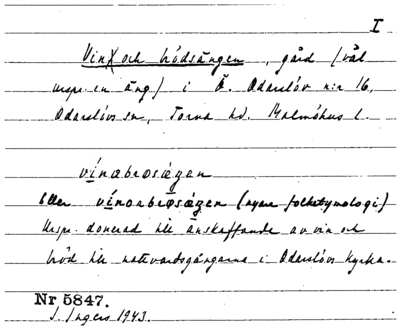 I
Vin och brödsängen, gård (väl
urspr. en äng) i Ö. Odarslöv n:r 16,
Odarslövs sn, Torna hd. Malmöhus l.
vínæbrøsæŋen
eller vínoabrøsæŋen (nyare folketymologi)
Urspr. donerad till anskaffande av vin och
bröd till nattvardsgångarna i Odarslövs kyrka.
Nr 5847.
I. Ingers 1943.